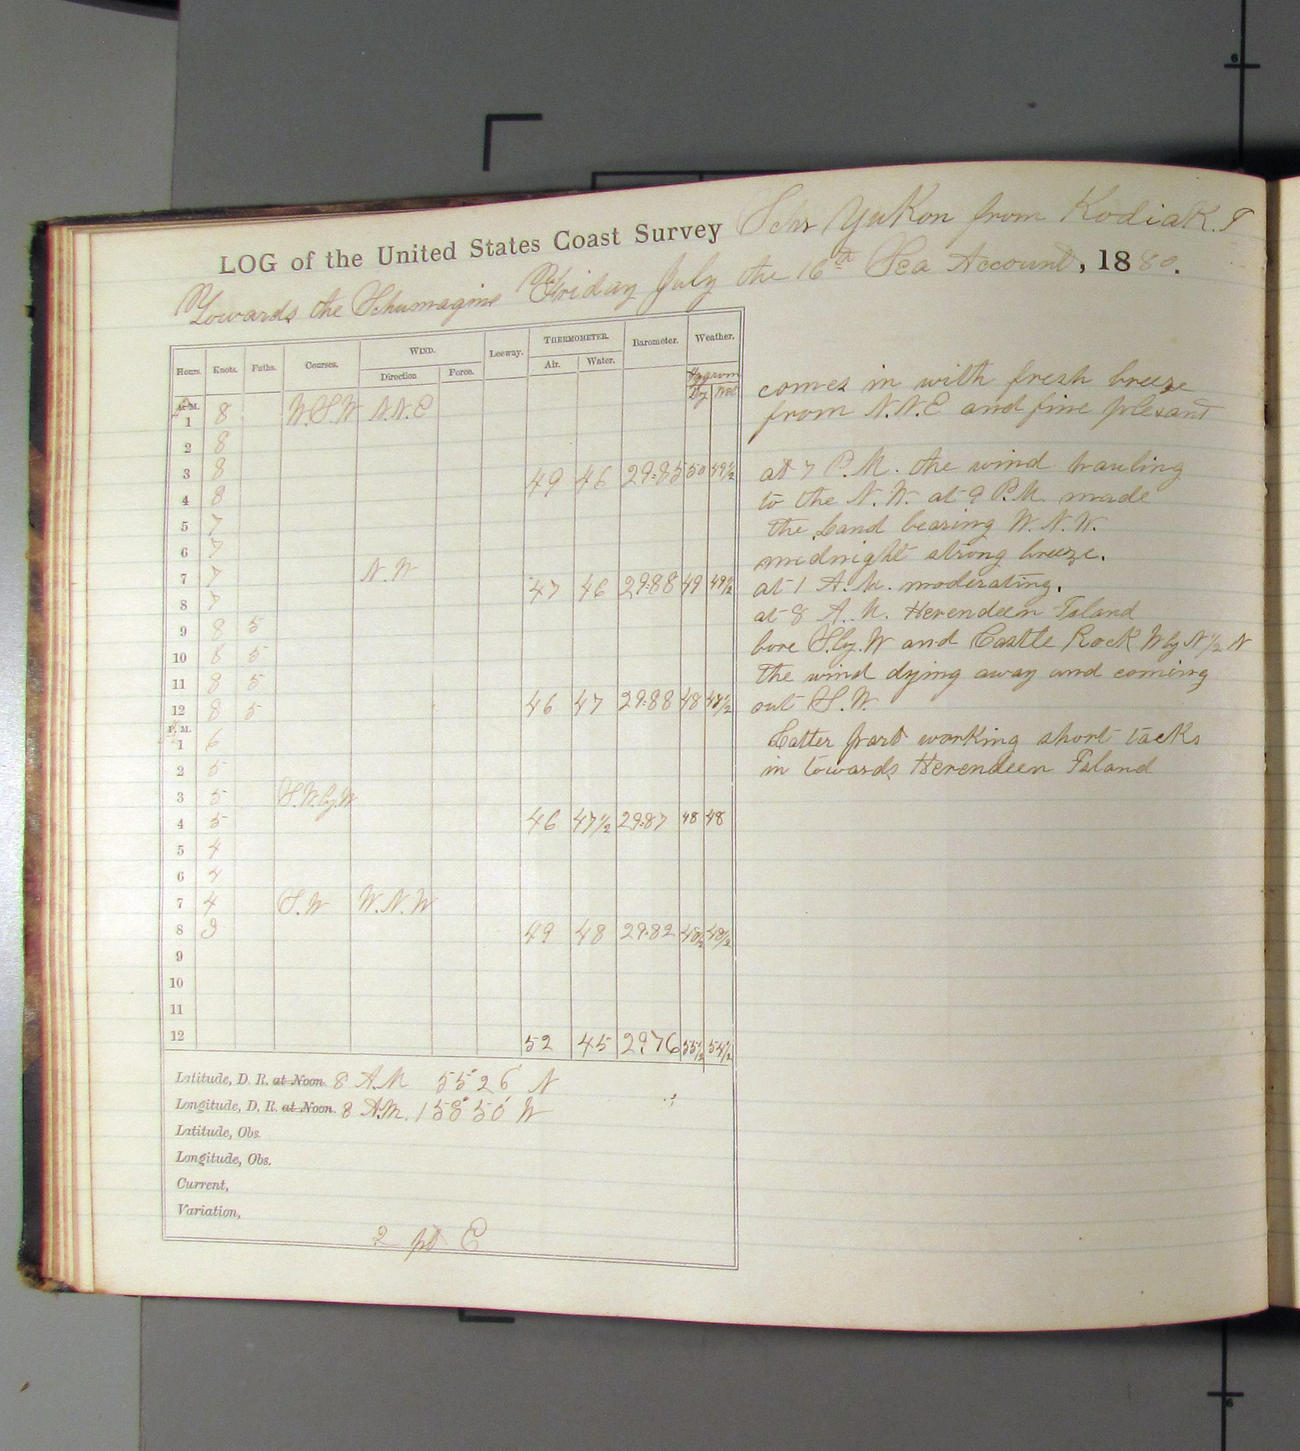 LOG of the United States Coast Survey Schr Yukon from Kodiak. I
Towards the Schumagins Friday July the 16th Sea Account, 1880.
Hours. Knots. Faths. Courses. WIND. Leeway. THERMOMETER. Barometer. Weather.
Direction Force. Air. Water.
Hygrom
Dy Wet
1 8 W.S.W N.N.E
2 8
3 8 49 46 29.85 50 49½
4 8
5 7
6 7
7 7 N.W 47 46 29.88 49 49½
8 7
9 8 5
10 8 5
11 8 5
12 8 5 46 47 29.88 48 48½
P.M.
1 6
2 5
3 5 S.W.by.W
4 5 46 47½ 29.87 48 48
5 4
6 4
7 4 S.W W.N.W
8 3 49 48 29.82 48½ 48½
9
10
11
12 52 45 29.76 55½ 54½
Latitude, D. R. at Noon. 8 A.M 55° 26' N
Longitude, D. R. at Noon. 8 A.M. 158° 50' W
Latitude, Obs.
Longitude, Obs.
Current,
Variation,
2 pt E
comes in with fresh breeze
from N.N.E and fine plesant
at 7 P.M. the wind hauling
to the N.W. at 9 P.M. made
the Land bearing W.N.W.
midnight strong breeze.
at 1 A.M. moderating.
at 8 A.M. Herendeen Island
bore S.by.W and Castle Rock W by N ½ N
the wind dying away and coming
out S.W
Latter part working short tacks
in towards Herendeen Island